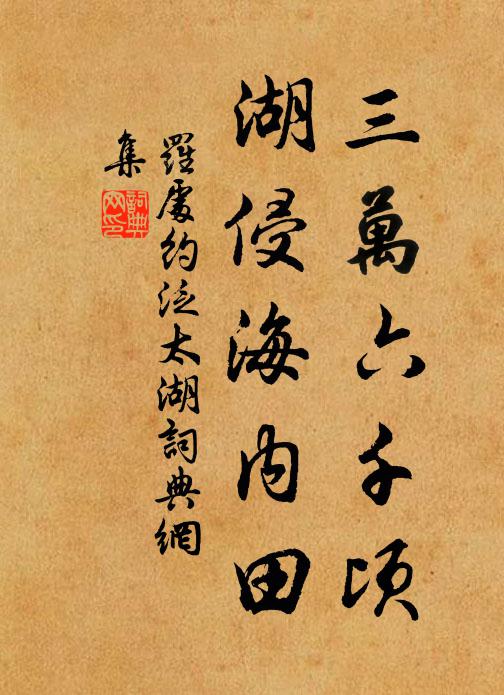 三萬六千頃
湖侵海內田
羅處約泛太湖詞典網
集
詞典網印